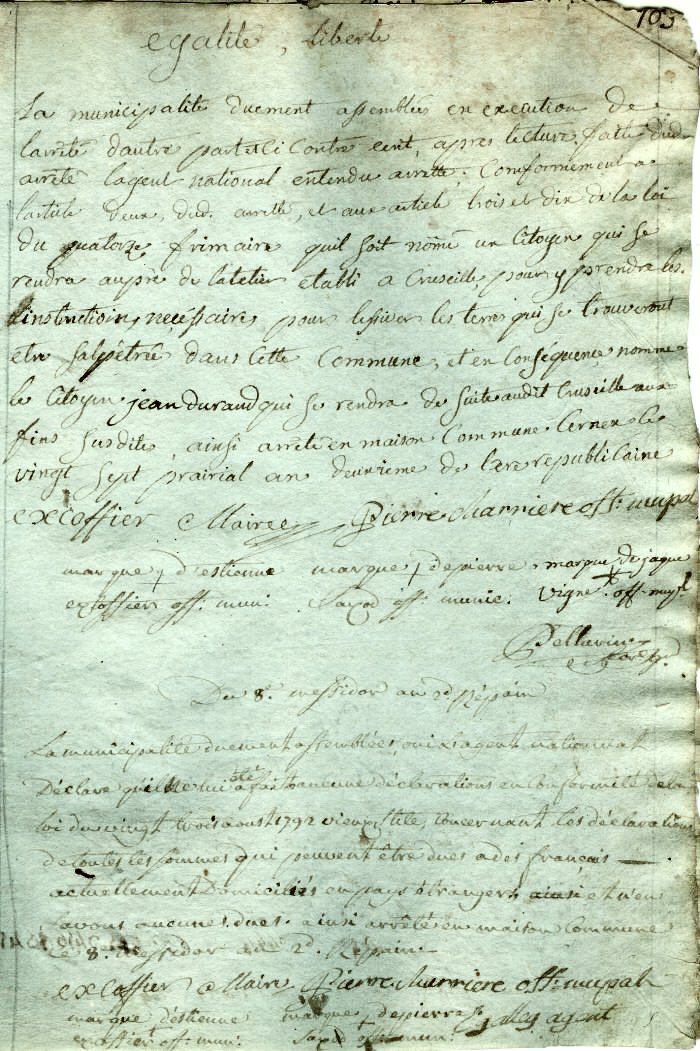 103
egalité, liberté
La municipalité duement assemblées en execution de
larrêté dautre part et ci contre ecrit, apres lecture faite dud.
arrêté lagent national entendu arrette, Conformement a
larticle deux, dud. arretté, et aux article trois et dix de la loi
du quatorze frimaire quil soit nommé un Citoyen qui se
rendra auprès de latelier établi a Cruseille, pour y prendre les
linstruction, necessaire, pour lessiver les terres qui se trouveront
etre salpêtrée dans Cette Commune, et en Conséquence nomme
le Citoyen jean durand qui se rendra de suite audit Cruseille aux
fins susdites, ainsi arrêté en maison Commune Cernex le
vingt sept prairial an deuxieme de lere republicaine
excoffier Maire Pierre charriere off. mupal
marque d'estienne marque depierre marque de jaque
excoffier off. muni. Saxod off. munic. Vigne off. mupl
Pellarin
Du 8e. messidor an 2d Répain
La municipalité duement assemblées, oui Lagent nationnal
Déclare quil ne lui a été fait aucune déclarations en Conformité de la
loi du vingt trois aoust 1792 vieux stile, Concernant les déclaration
de toutes les sommes qui peuvent être dues a des français
actuellement Domiciliés en pays étrangers, ainsi et n'en
savons aucunes dues. ainsi arrêté en maison Commune
ce 8. messidor an 2d. Répain.
excoffier Maire Pierre charriere off. mupal
marque d'estienne marque depierre agent
excoffier off. mun. Saxod off. mun.